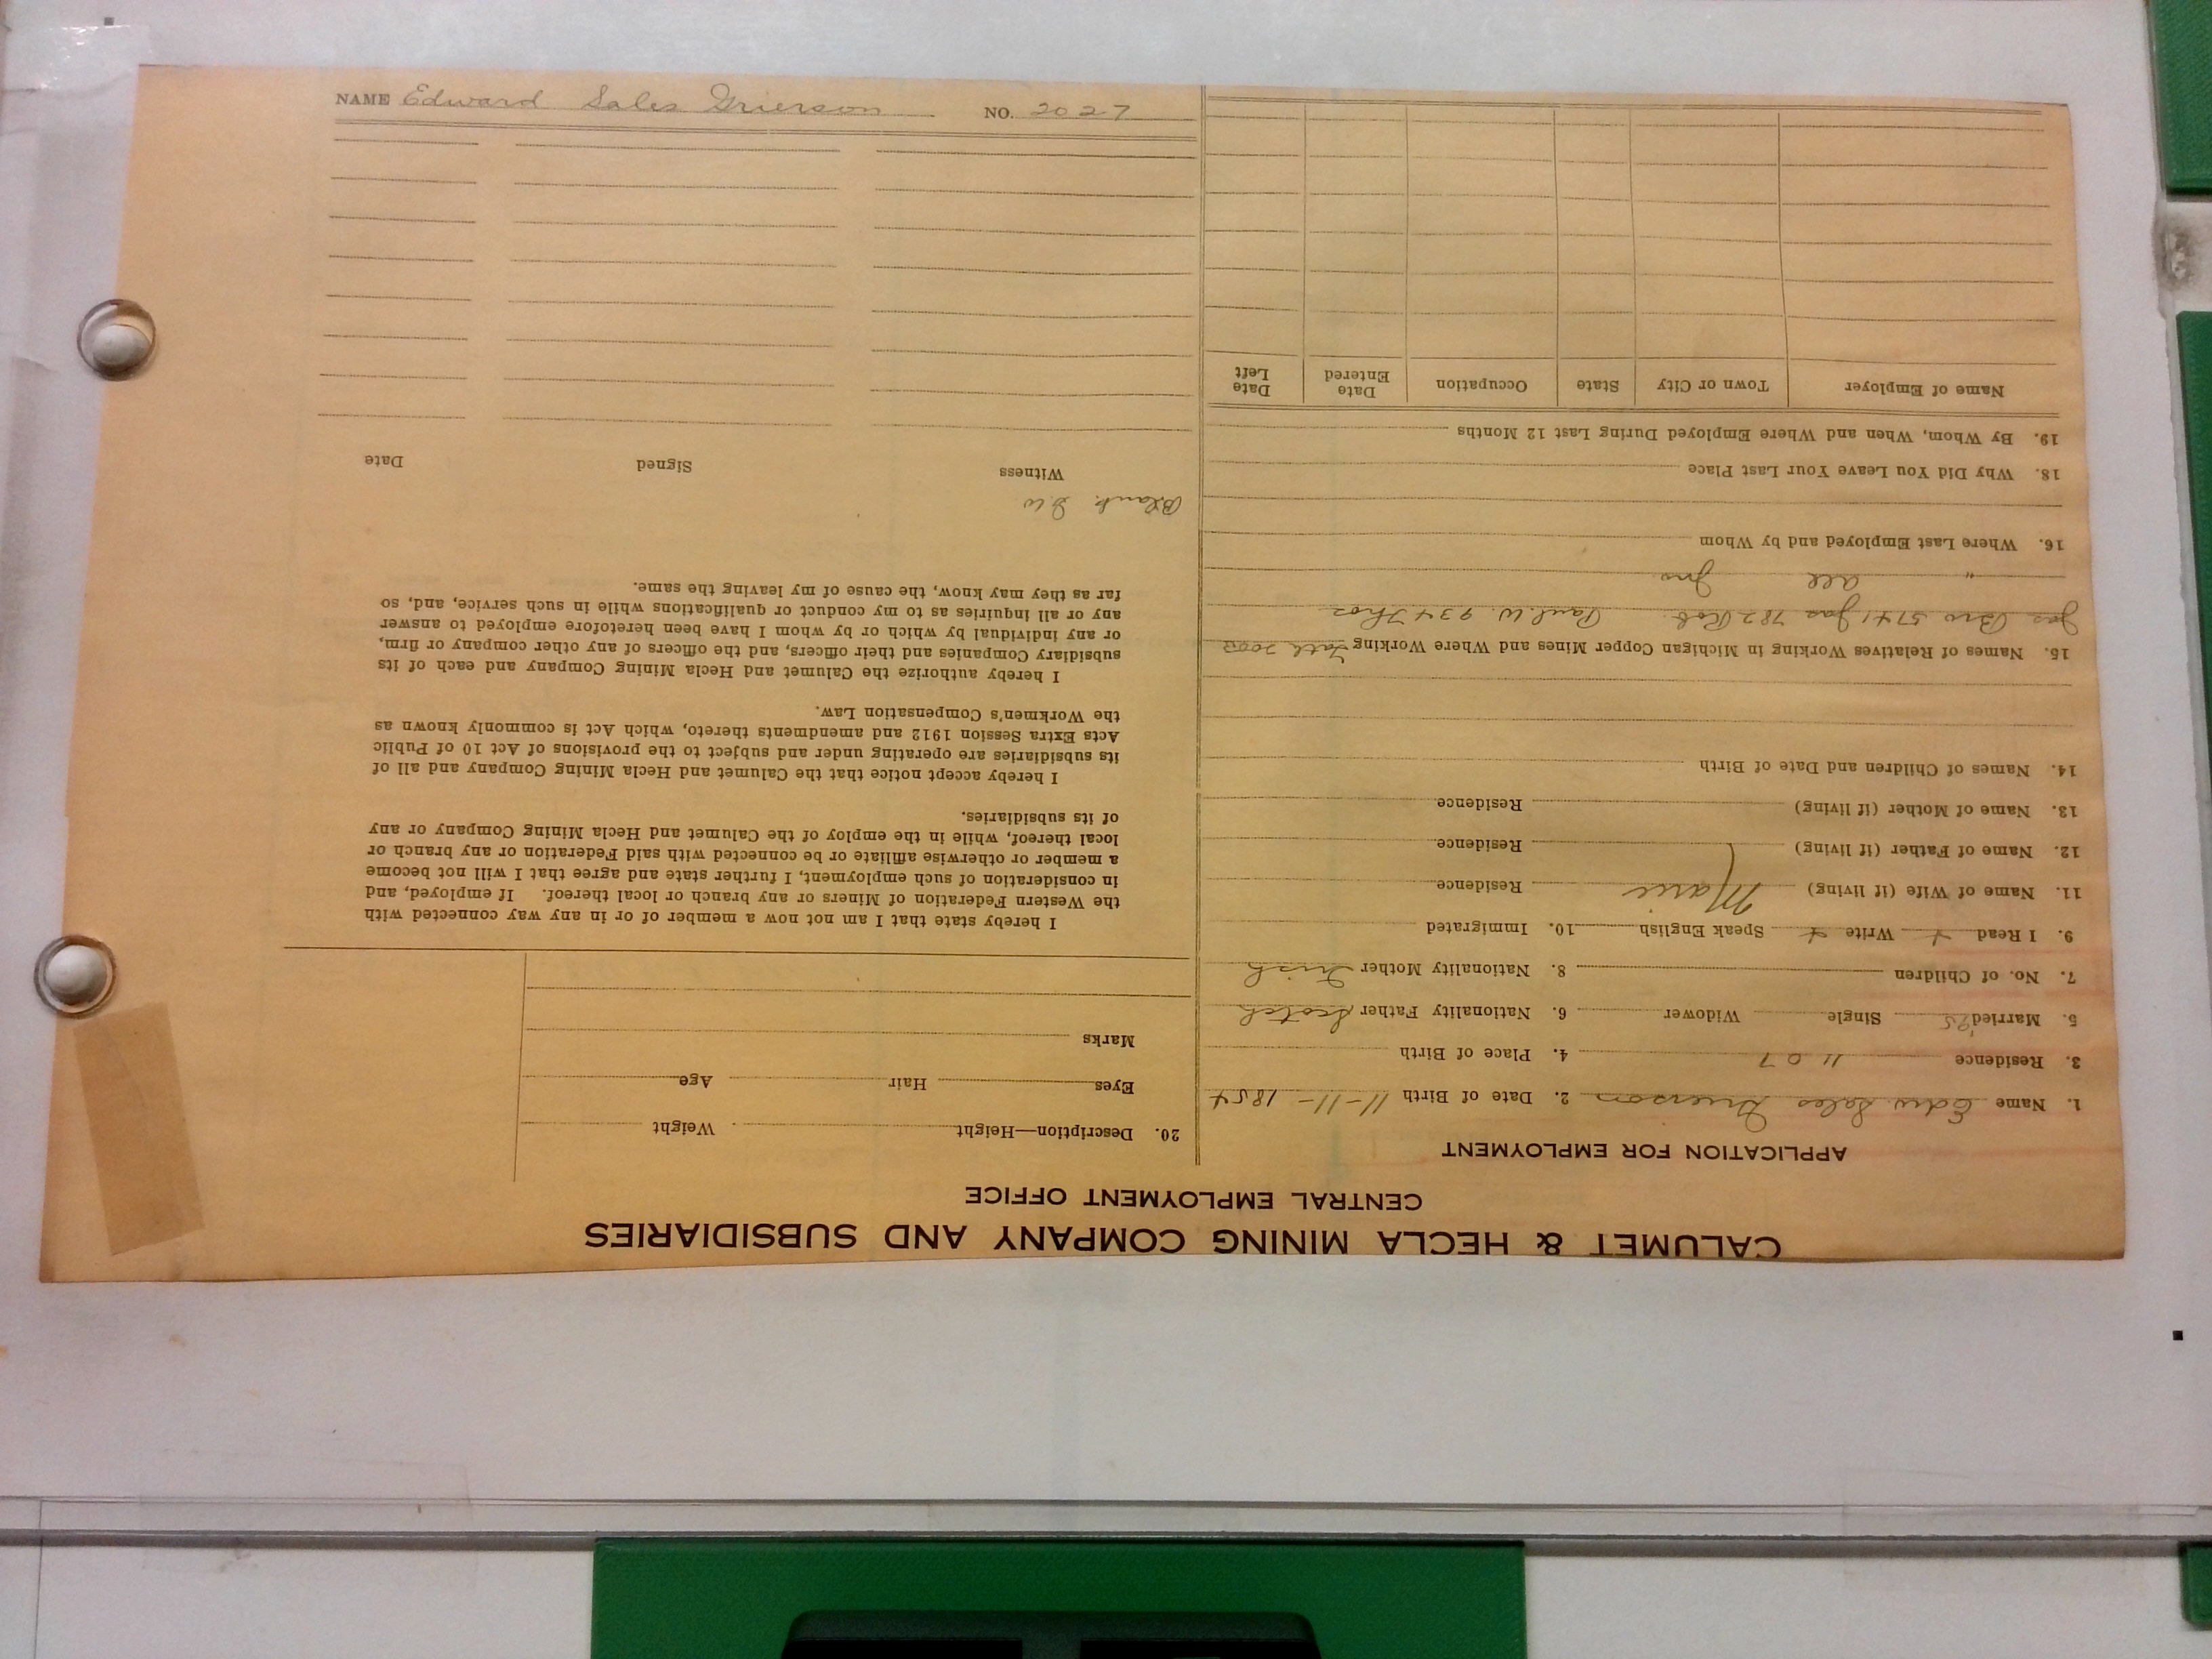 CALUMET & HECLA MINING COMPANY AND SUBSIDIARIES
CENTRAL EMPLOYMENT OFFICE
APPLICATION FOR EMPLOYMENT
1. Name Edw Sales Grierson 2. Date of Birth 11-11-1854
3. Residence 1107 4. Place of Birth
5. Married '95 Single Widower 6. Nationality Father Scotch
7. No. of Children 8. Nationality Mother Irish
9. I Read + Write + Speak English 10. Immigrated
11. Name of Wife (if living) Marie Residence
12. Name of Father (if living) Residence
13. Name of Mother (if living) Residence
14. Names of Children and Date of Birth
15. Names of Relatives Working in Michigan Copper Mines and Where Working Fath 2003
Jas Bro 5741 Jas 782 Rob. Paul. W. 934 Thos
" all Jno
16. Where Last Employed and by Whom
18. Why Did You Leave Your Last Place
19. By Whom, When and Where Employed During Last 12 Months
Name of Employer Town or City State Occupation Date Entered Date Left
20. Description—Height Weight
Eyes Hair Age
Marks
I hereby state that I am not now a member of or in any way connected with
the Western Federation of Miners or any branch or local thereof. If employed, and
in consideration of such employment, I further state and agree that I will not become
a member or otherwise affiliate or be connected with said Federation or any branch or
local thereof, while in the employ of the Calumet and Hecla Mining Company or any
of its subsidiaries.
I hereby accept notice that the Calumet and Hecla Mining Company and all of
its subsidiaries are operating under and subject to the provisions of Act 10 of Public
Acts Extra Session 1912 and amendments thereto, which Act is commonly known as
the Workmen's Compensation Law.
I hereby authorize the Calumet and Hecla Mining Company and each of its
subsidiary Companies and their officers, and the officers of any other company or firm,
or any individual by which or by whom I have been heretofore employed to answer
any or all inquiries as to my conduct or qualifications while in such service, and, so
far as they may know, the cause of my leaving the same.
Blank
Witness Signed Date
NAME Edward Sales Grierson NO. 2027